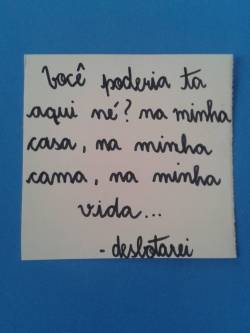 Você poderia ta
aqui né? na minha
casa, na minha
cama, na minha
vida...
- desbotarei